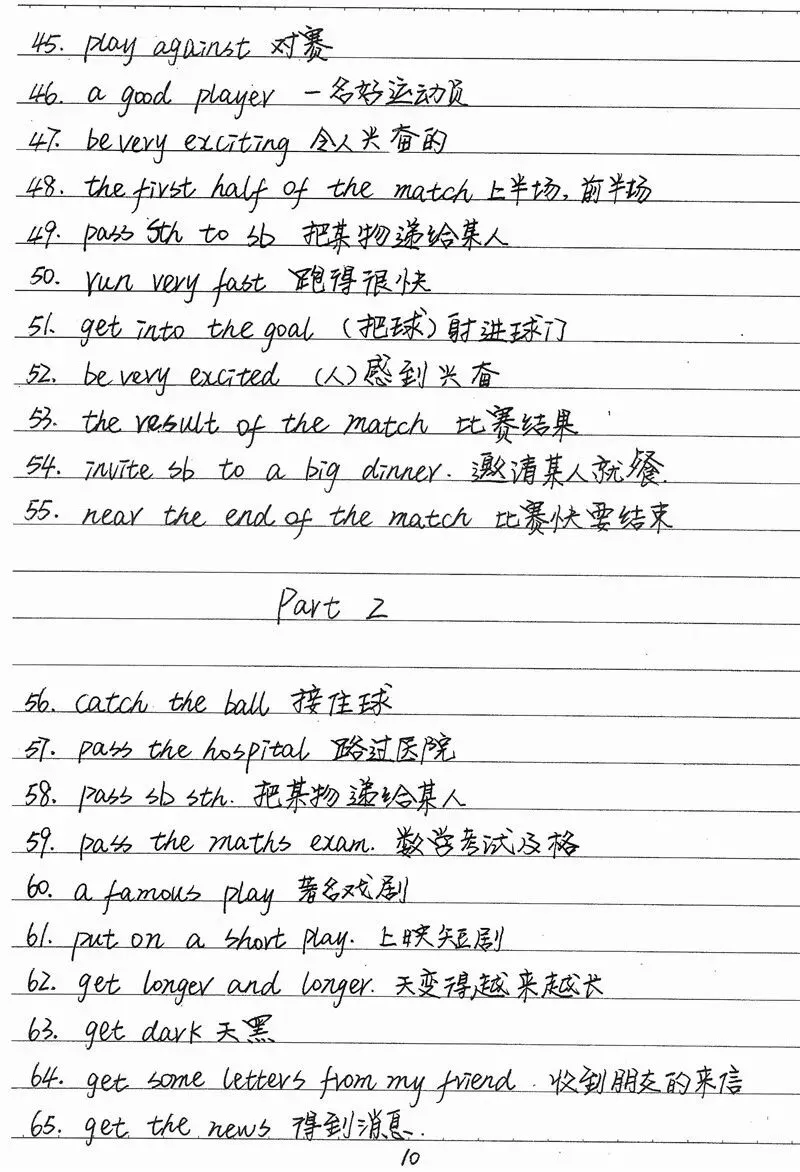 45. play against 对赛
46. a good player 一名好运动员
47. be very exciting 令人兴奋的
48. the first half of the match 上半场、前半场
49. pass sth to sb 把某物递给某人
50. run very fast 跑得很快
51. get into the goal (把球)射进球门
52. be very excited (人)感到兴奋
53. the result of the match 比赛结果
54. invite sb to a big dinner. 邀请某人就餐.
55. near the end of the match 比赛快要结束
Part 2
56. catch the ball 接住球
57. pass the hospital 路过医院
58. pass sb sth. 把某物递给某人
59. pass the maths exam. 数学考试及格
60. a famous play 著名戏剧
61. put on a short play. 上映短剧
62. get longer and longer. 天变得越来越长
63. get dark 天黑
64. get some letters from my friend. 收到朋友的来信
65. get the news 得到消息.
10